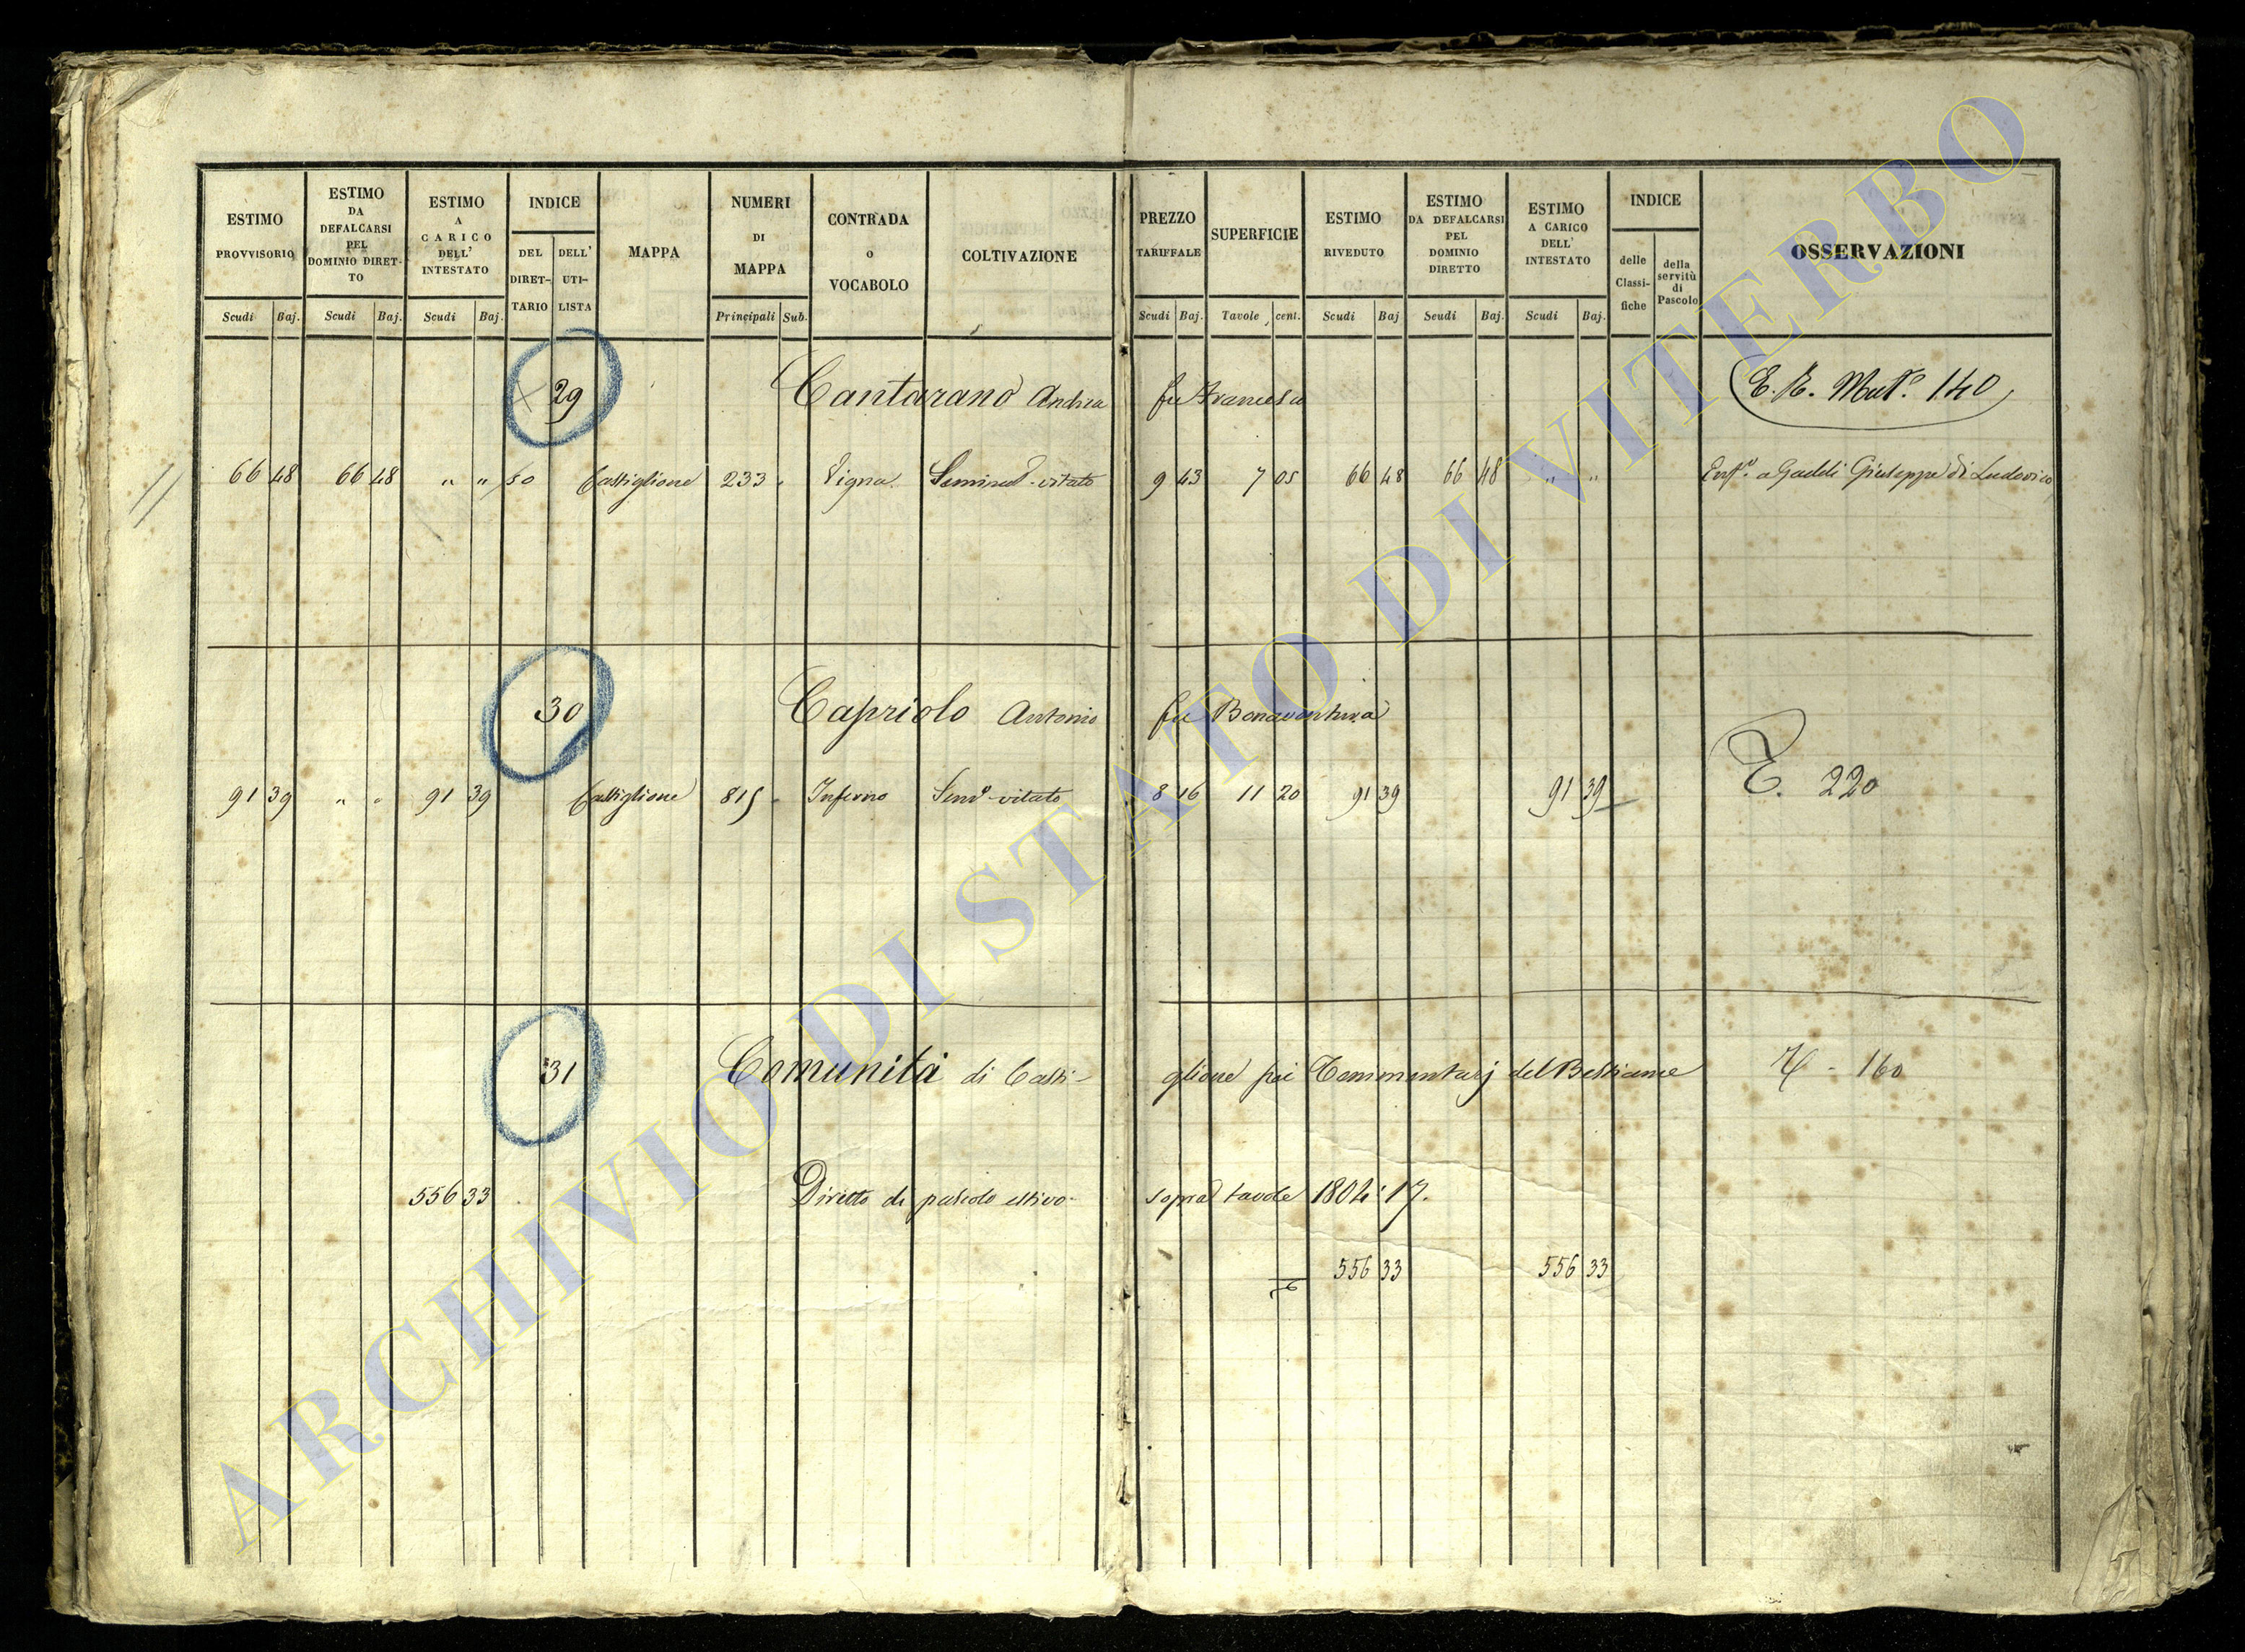 ESTIMO PROVVISORIO
ESTIMO DA DEFALCARSI PEL DOMINIO DIRETTO
ESTIMO A CARICO DELL' INTESTATO
INDICE
DEL DIRET-TARIO
DELL' UTI-LISTA
MAPPA
NUMERI DI MAPPA
CONTRADA o VOCABOLO
COLTIVAZIONE
PREZZO TARIFFALE
SUPERFICIE
ESTIMO RIVEDUTO
ESTIMO DA DEFALCARSI PEL DOMINIO DIRETTO
ESTIMO A CARICO DELL' INTESTATO
INDICE
delle Classi-fiche
della servitù di Pascolo
OSSERVAZIONI
Scudi Baj. Scudi Baj. Scudi Baj. Principali Sub. Scudi Baj. Tavole cent. Scudi Baj Scudi Baj. Scudi Baj.
29 Cantarano Andrea fu Francesco 140
66 48 66 48 " " 50 Castiglione 233 Vigna Seminat. vitato 9 43 7 05 66 48 66 48 " " a Gaddi Giuseppe di Ludovico
30 Capriolo Antonio fu Bonaventura
91 39 " " 91 39 Castiglione 815 Inferno Semo vitato 8 16 11 20 91 39 91 39 220
31 Comunità di Casti-glione pei Commentarj del Bestiame 160
556 33 Diritto di pascolo estivo sopra tavole 1804:17.
556 33 556 33
ARCHIVIO DI STATO DI VITERBO